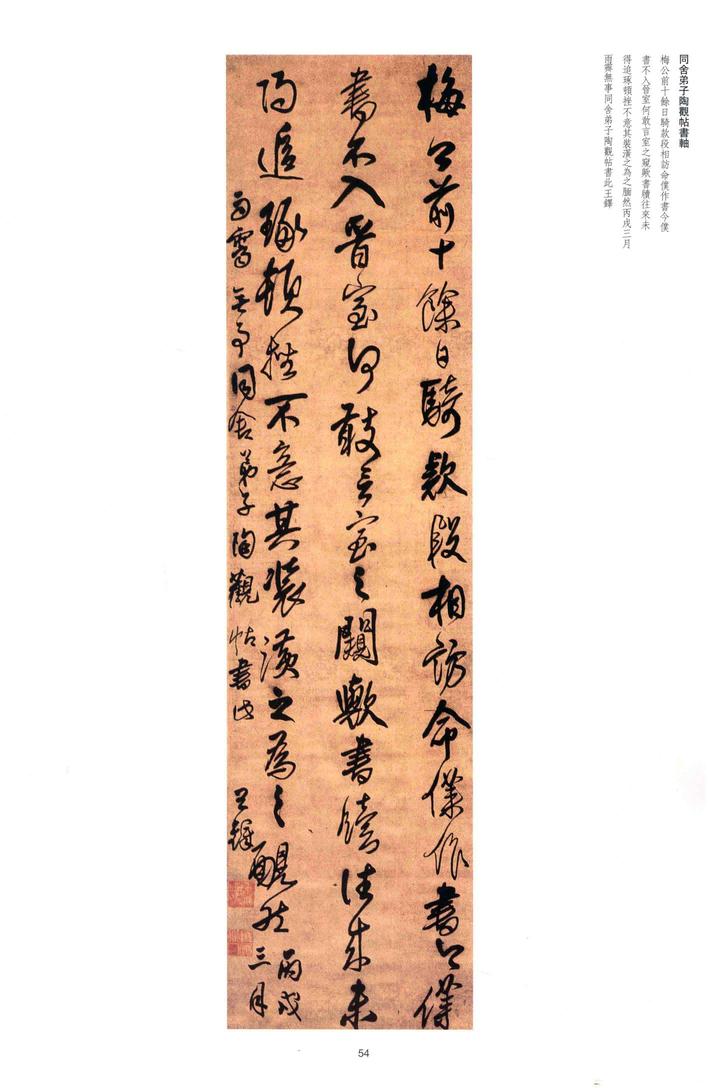 同舍弟子陶觀帖書軸
梅公前十餘日騎款段相訪命僕作書今僕
書不入晉室何敢言室之窺歟書牘往來未
得追琢頓挫不意其裝潢之為之靦然丙戌三月
雨霽無事同舍弟子陶觀帖書此王鐸
梅公前十餘日騎款段相訪命僕作書今僕
書不入晉室何敢言室之闚歟書牘往來未
得追琢頓挫不意其裝潢之為之靦然丙戌三月
雨霽無事同舍弟子陶觀帖書此王鐸
54